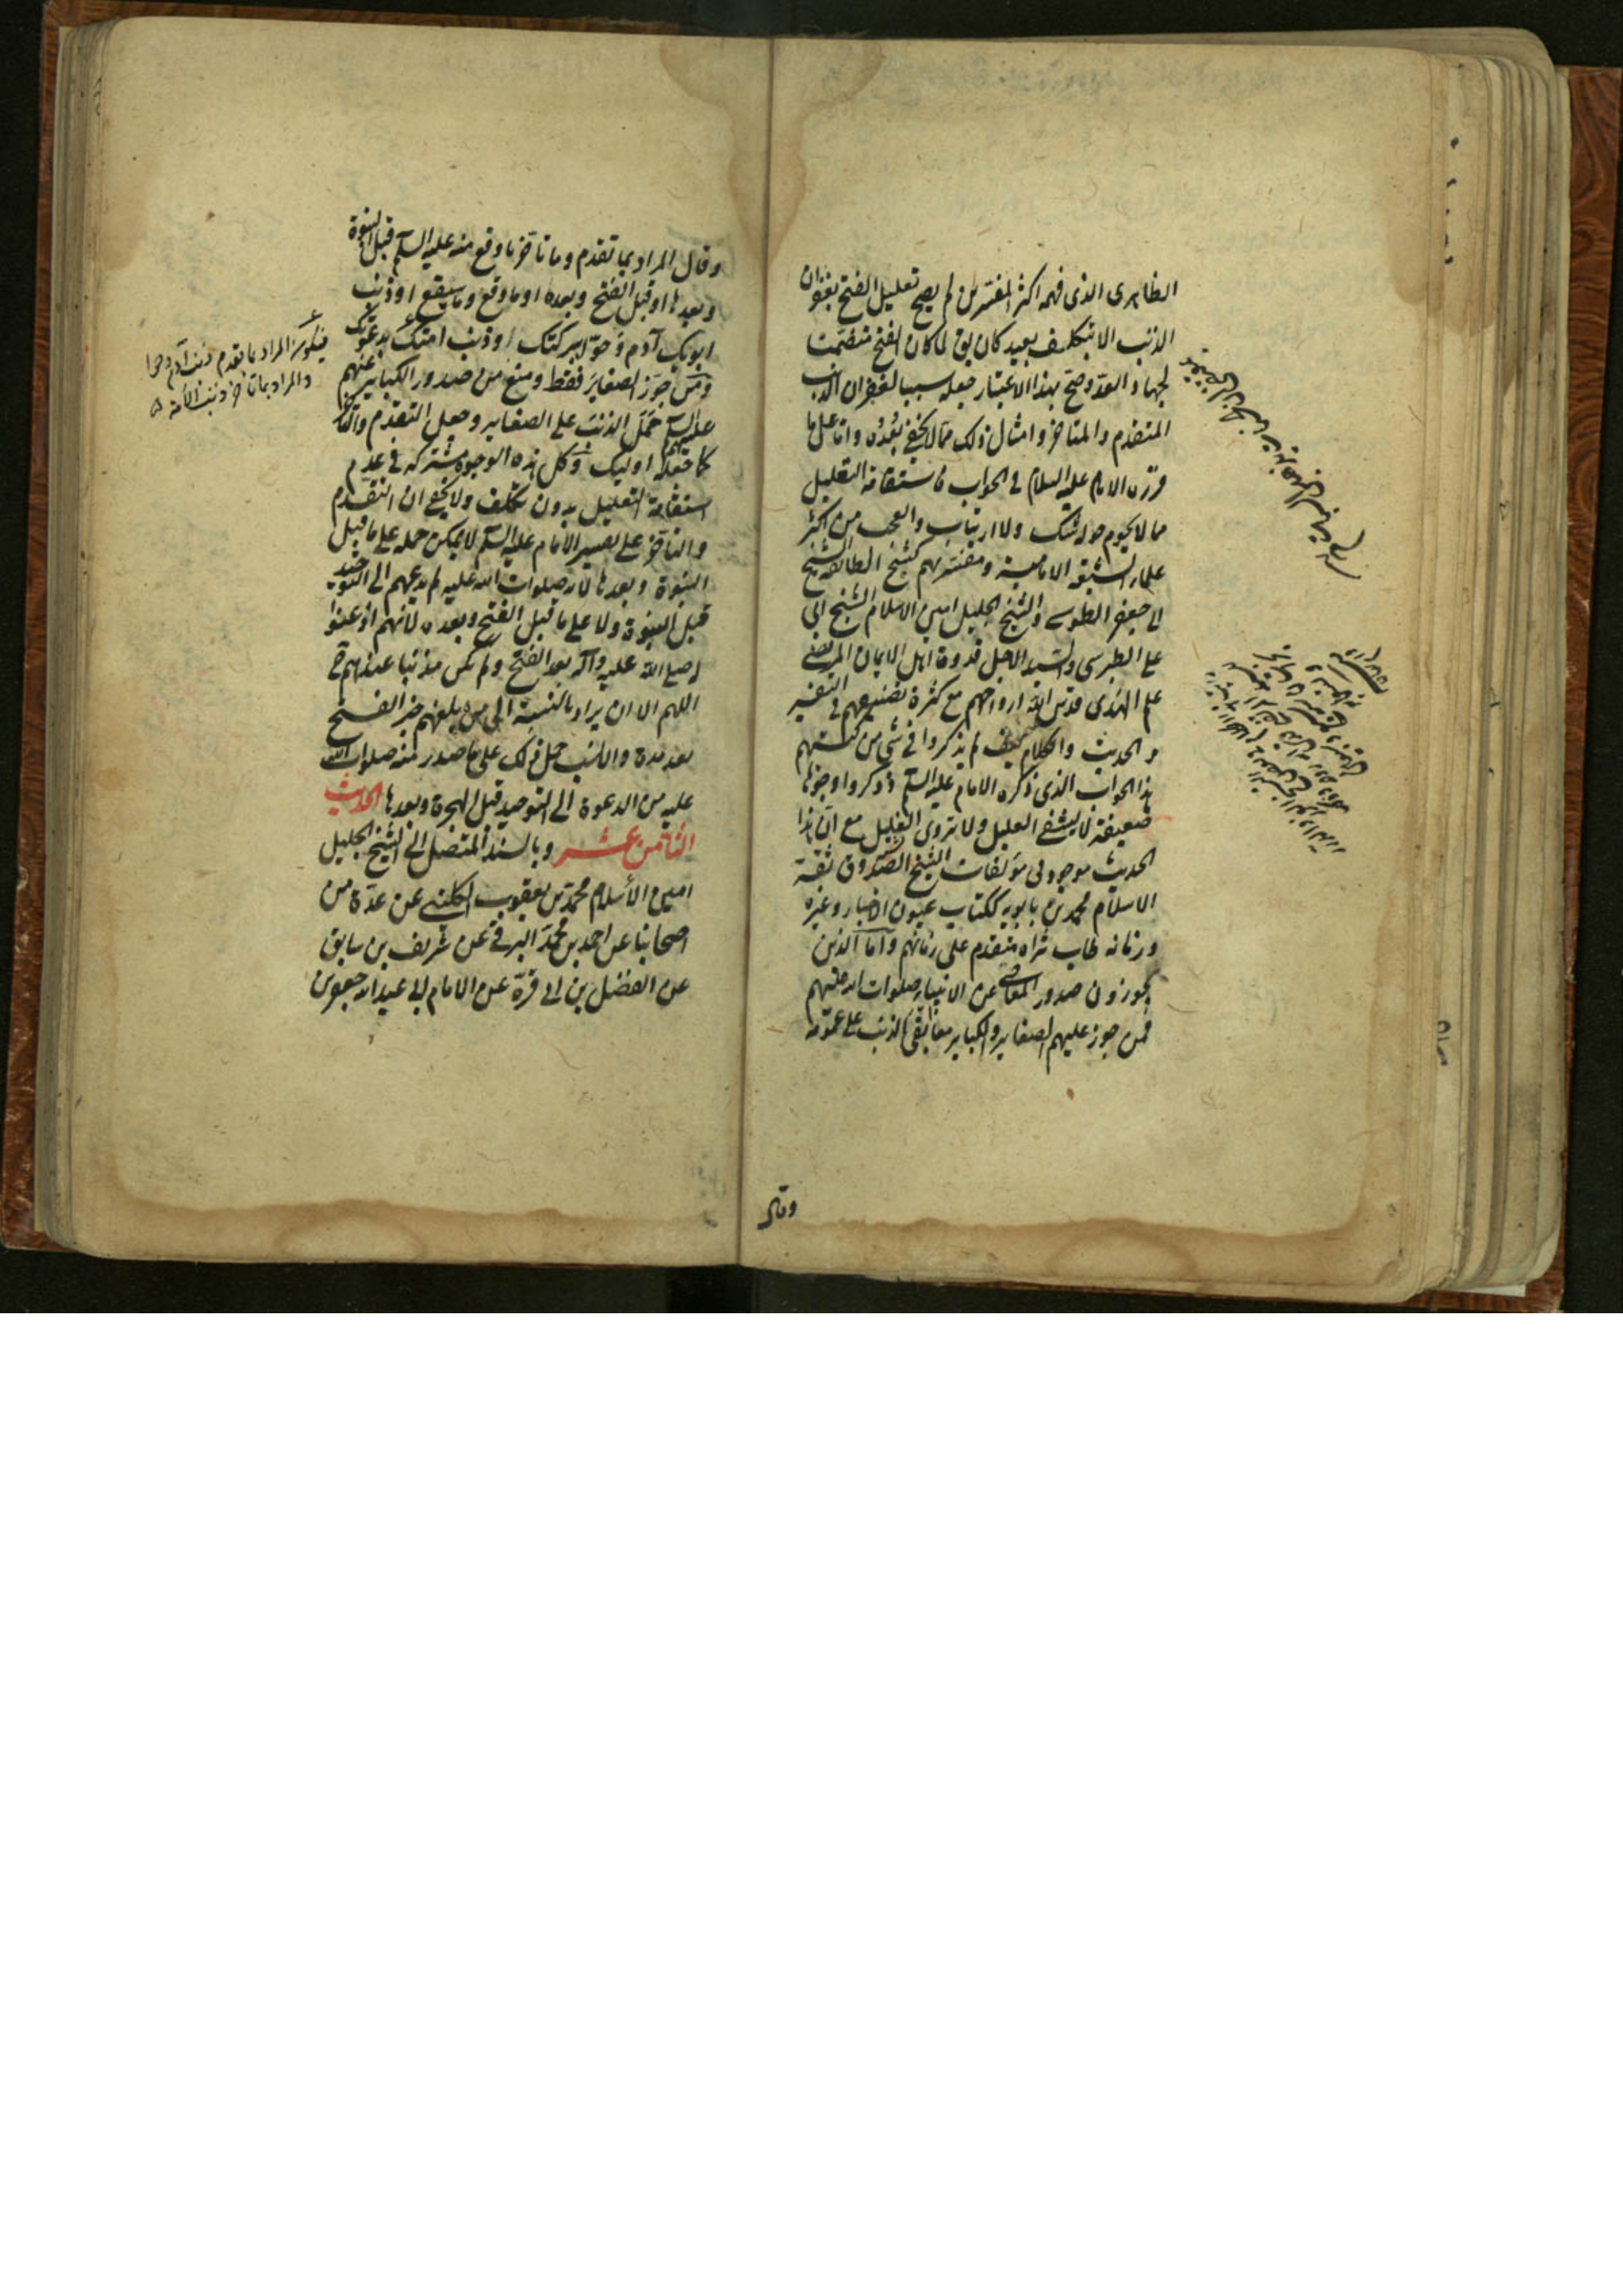 الظاهرى الذى فهمه اكثر المفسرين لم يصح تعليل الفتح بغفران
الذنب الا بتكلف بعيد كان يق لما كان الفتح متضمنا
لجهاد العدو صح بهذا الاعتبار جعله سببا لغفران الذنب
المتقدم والمتاخر وامثال ذلك مما لا يخفى بعده واما على ما
قرره الامام عليه السلام فى الجواب فاستقامة التعليل
مما لا يحوم حوله شك ولا ارتياب والعجب من اكثر
علماء الشيعة الامامية ومفسريهم كشيخ الطائفة الشيخ
ابى جعفر الطوسى والشيخ الجليل امين الاسلام الشيخ ابى
على الطبرسى والسيد الاجل قدوة اهل الايمان المرتضى
علم الهدى قدس الله ارواحهم مع كثرة تصنيفهم فى التفسير
والحديث والكلام كيف لم يذكروا فى شى من كتبهم
هذا الجواب الذى ذكره الامام عليه السلم وذكروا وجوها
ضعيفة لا يشفى العليل ولا تروى الغليل مع ان هذا
الحديث موجود فى مؤلفات الشيخ الصدوق ثقة
الاسلام محمد بن بابويه ككتاب عيون الاخبار وغيره
وزمانه طاب ثراه متقدم على زمانهم واما الذين
يجوزون صدور المعاصى عن الانبياء صلوات الله عليهم
فمن جوز عليهم الصغاير والكباير معا ابقى الذنب على عمومه
وقال
وقال المراد بما تقدم وما تاخر ما وقع منه عليه السلم قبل النبوة
وبعدها او قبل الفتح وبعده او ما وقع وما سيقع او ذنب
ابويك آدم وحوا ببركتك او ذنب امتك بدعوتك
ومن جوز الصغاير فقط ومنع من صدور الكباير عنهم
عليهم السلم حمل الذنب على الصغاير وجعل التقدم والتاخر
كما جعله اوليك وكل هذه الوجوه مشتركه فى عدم
استقامة التعليل بدون تكلف ولا يخفى ان التقدم
والتاخر على تفسير الامام عليه السلم لا يمكن حمله على ما قبل
النبوة وبعدها لانه صلوات الله عليه لم يدعهم الى التوحيد
قبل النبوة ولا على ما قبل الفتح وبعده لانهم اذعنوا
له صلى الله عليه وآله بعد الفتح ولم يكن مذنبا عندهم ح
اللهم الا ان يراد بالنسبة الى من بلغهم خبر الفتح
بعد مدة والانسب حمل ذلك على ما صدر منه صلوات الله
عليه من الدعوة الى التوحيد قبل الهجرة وبعدها الحديث
الثامن عشر وبالسند المتصل الى الشيخ الجليل
امين الاسلام محمد بن يعقوب الكلينى عن عدة من
اصحابنا عن احمد بن محمد البرقى عن شريف بن سابق
عن الفضل بن ابى قرة عن الامام ابى عبد الله جعفر بن
فيكون المراد بما تقدم ذنب آدم وحوا
والمراد بما تاخر ذنب الامة